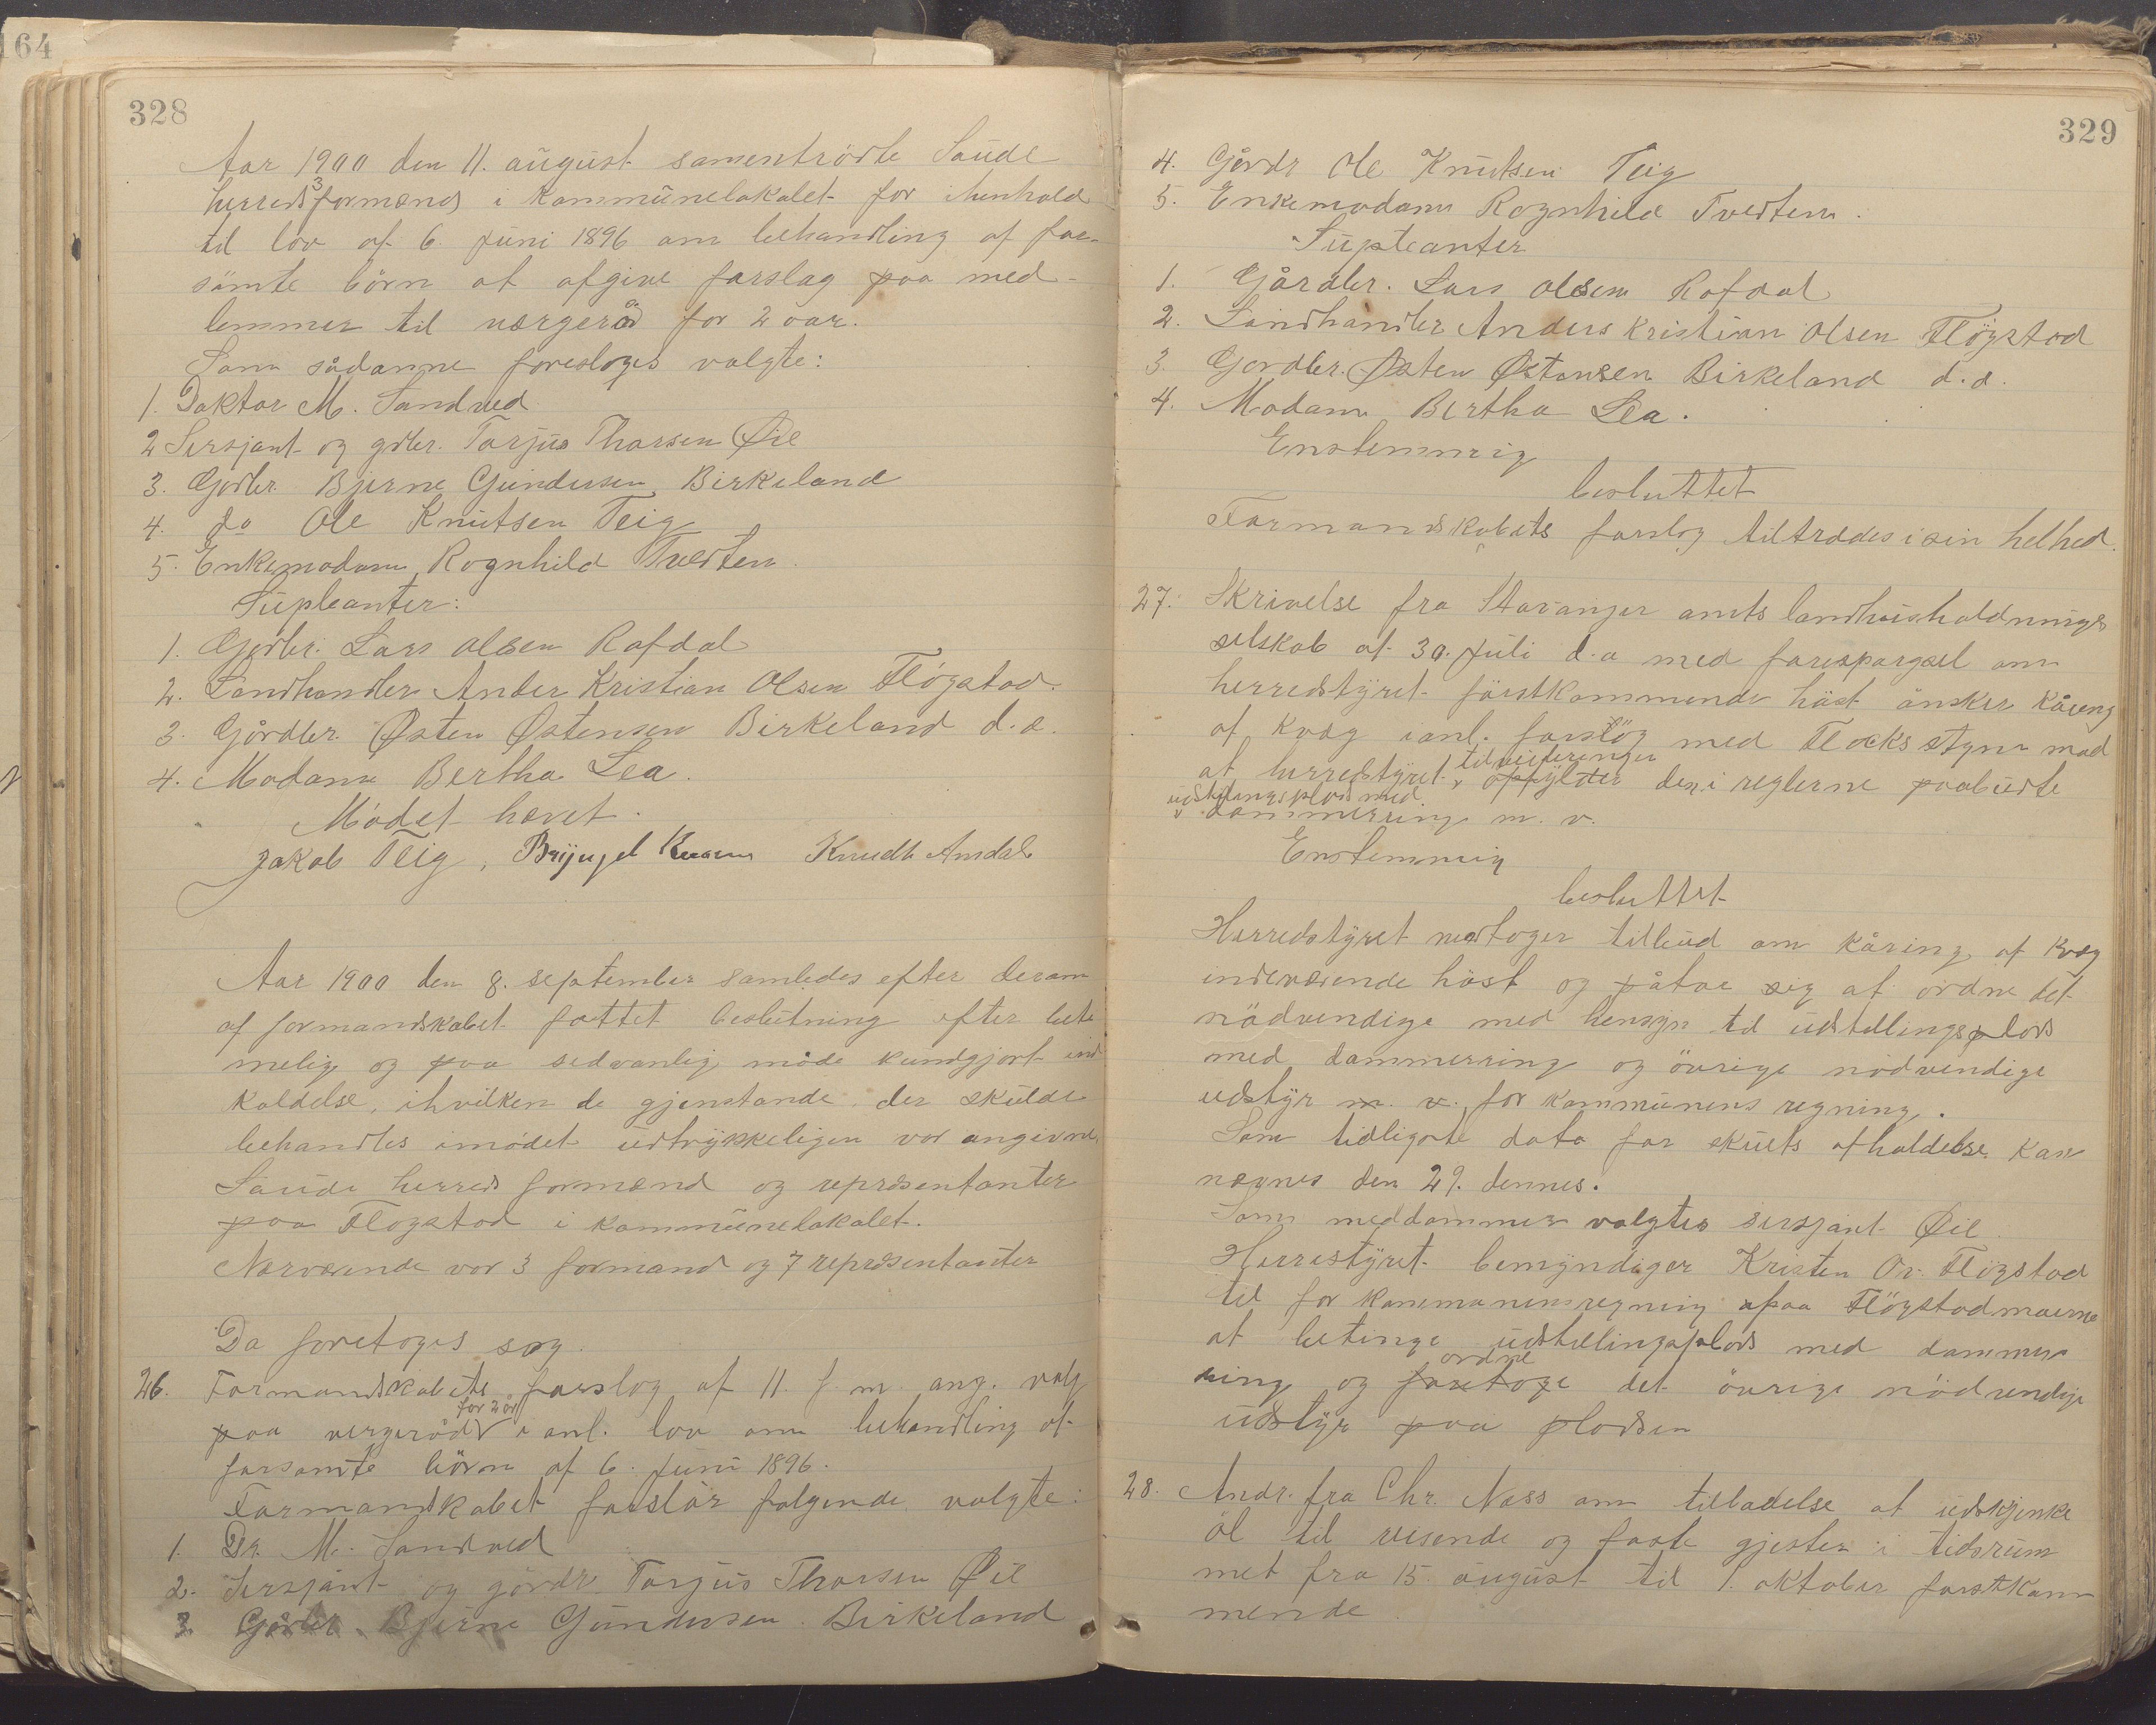 164
328
Aar 1900 den 11. august samentrådte Saude
herreds 3 formænd i kommunelokalet for ihenhold
til lov af 6. Juni 1896 om behandling af for-
sömte börn at afgive forslag paa med-
lemmer til værgeråd for 2 aar.
Som sådanne foresloges valgte:
1. Doktor M. Sandved
2 Sersjant og grdbr. Torjus Thorsen Øie
3. Gårdbr. Bjerne Gundersen Birkeland
4. do Ole Knutsen Teig
5. Enkemadam Rognhild Tveden
Supleanter:
1. Gårdbr. Lars Olsen Rafdal
2. Landhandler Ander Kristian Olsen Flögstad.
3. Gårdbr. Østen Østensen Birkeland d.æ.
4. Madam Bertha Lea.
Mödet hævet.
Jakob Teig, Knudt Amdal
Aar 1900 den 8. september samledes efter derom
af formandskabet fattet beslutning efter bete
melig og paa sedvanlig måde kundgjort ind
kaldelse, ihvilken de gjenstande der skulde
behandles imödet udtrykkeligen var angivne,
Saude herreds formænd og repræsentanter
paa Flogstad i kommunelokalet.
Nærværende var 3 formænd og 7 repræsentanter
Da foretoges sag.
26. Formandskabets forslag af 11. f. m. ang. valg
for 2 år
paa vergeråd i anl. lov om behandling af
forsömte börn af 6. Juni 1896.
Formandskabet forslår følgende valgte:
1. Dr. M. Sandved
2. Sersjant og gårdr. Torjus Thorsen Øie
3. Gårdbr. Bjerne Gundersen Birkeland
329
4. Gårdr Ole Knutsen Teig
5. Enkemadam Rognhild Tveden.
Supleanter
1. Gårdbr. Lars Olsen Rafdal
2. Landhandler Anders Kristian Olsen Flögstad
3. Gardbr. Østen Østensen Birkeland d.æ.
4. Madam Bertha Lea.
Enstemmig
besluttet
Formandskabets forslag tiltrædes i sin helhed.
27. Skrivelse fra Stavanger amts landhusholdnings
selskab af 30. Juli d.a med forespørgsel om
herredstyret förstkommende höst önsker kåring
af kvæg i anl. forslög med Flekks styre mod
at herredstyret opfylder den i reglerne paabudte
udstillingsplads med
dommerring m. v.
Enstemmig
besluttet
Herredstyret modtager tilbud om kåring af kvæg
indeværende höst og påtar sig at ordne det
nödvendige med hensyn til udstillingsplads
med dommerring og övrige nödvendige
udstyr m. v. for kommunens regning.
Som tidligste dato for skuets afholdelse kan
nævnes den 29. dennes.
Som meddommer valgtes sersjant Øie.
Herrestyret bemyndiger Kristen Flögstad
til for kommunens regning paa Flögstadmoerne
at betinge udstillingsplads med dommer
ordne
ring og foretage det övrige nödvendige
udstyr paa pladsen
28. Andr. fra Chr. Næss om tilladelse at udskjenke
öl til reisende og faste gjester i tidsrum
met fra 15. august til 1. oktober forstkom
mende.